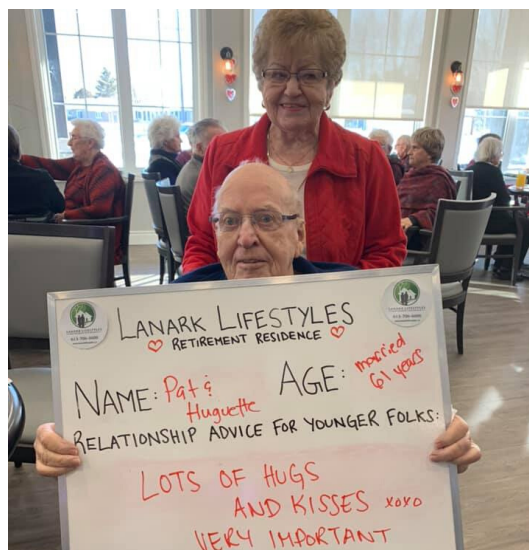 LANARK LIFESTYLES
RETIREMENT RESIDENCE
NAME: Pat &
Huguette
AGE: married
61 years
RELATIONSHIP ADVICE FOR YOUNGER FOLKS:
LOTS OF HUGS
AND KISSES xoxo
VERY IMPORTANT